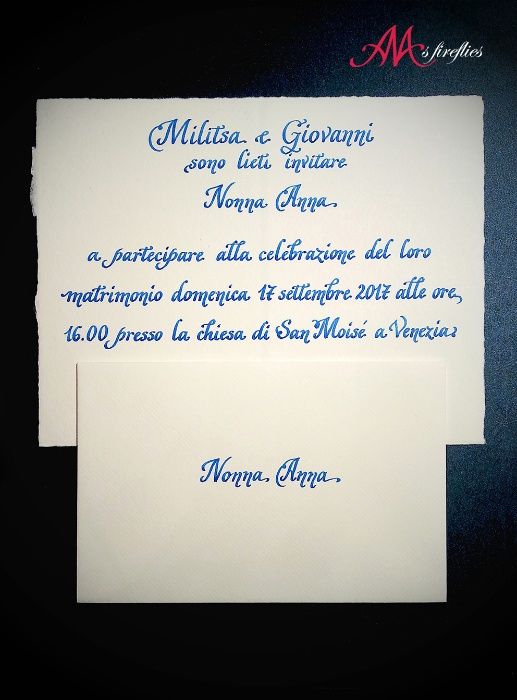 AAA's fireflies
Militsa e Giovanni
sono lieti invitare
Nonna Anna
a partecipare alla celebrazione del loro
matrimonio domenica 17 settembre 2017 alle ore
16.00 presso la chiesa di San Moisé a Venezia
Nonna Anna